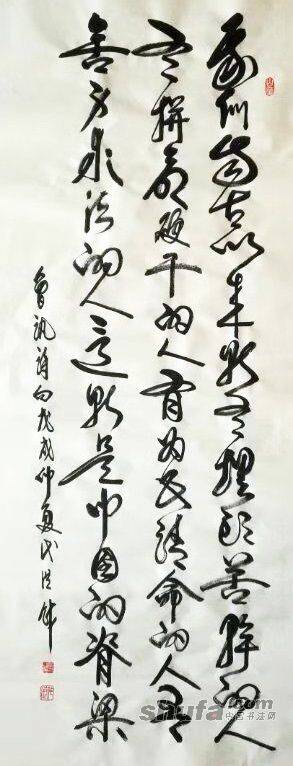 我们古以来就有埋头苦幹的人
有拼命硬干的人有为民请命的人有
舍身求法的人这就是中国的脊梁
鲁迅诗句戊戌仲夏
shufa.com
中国书法网